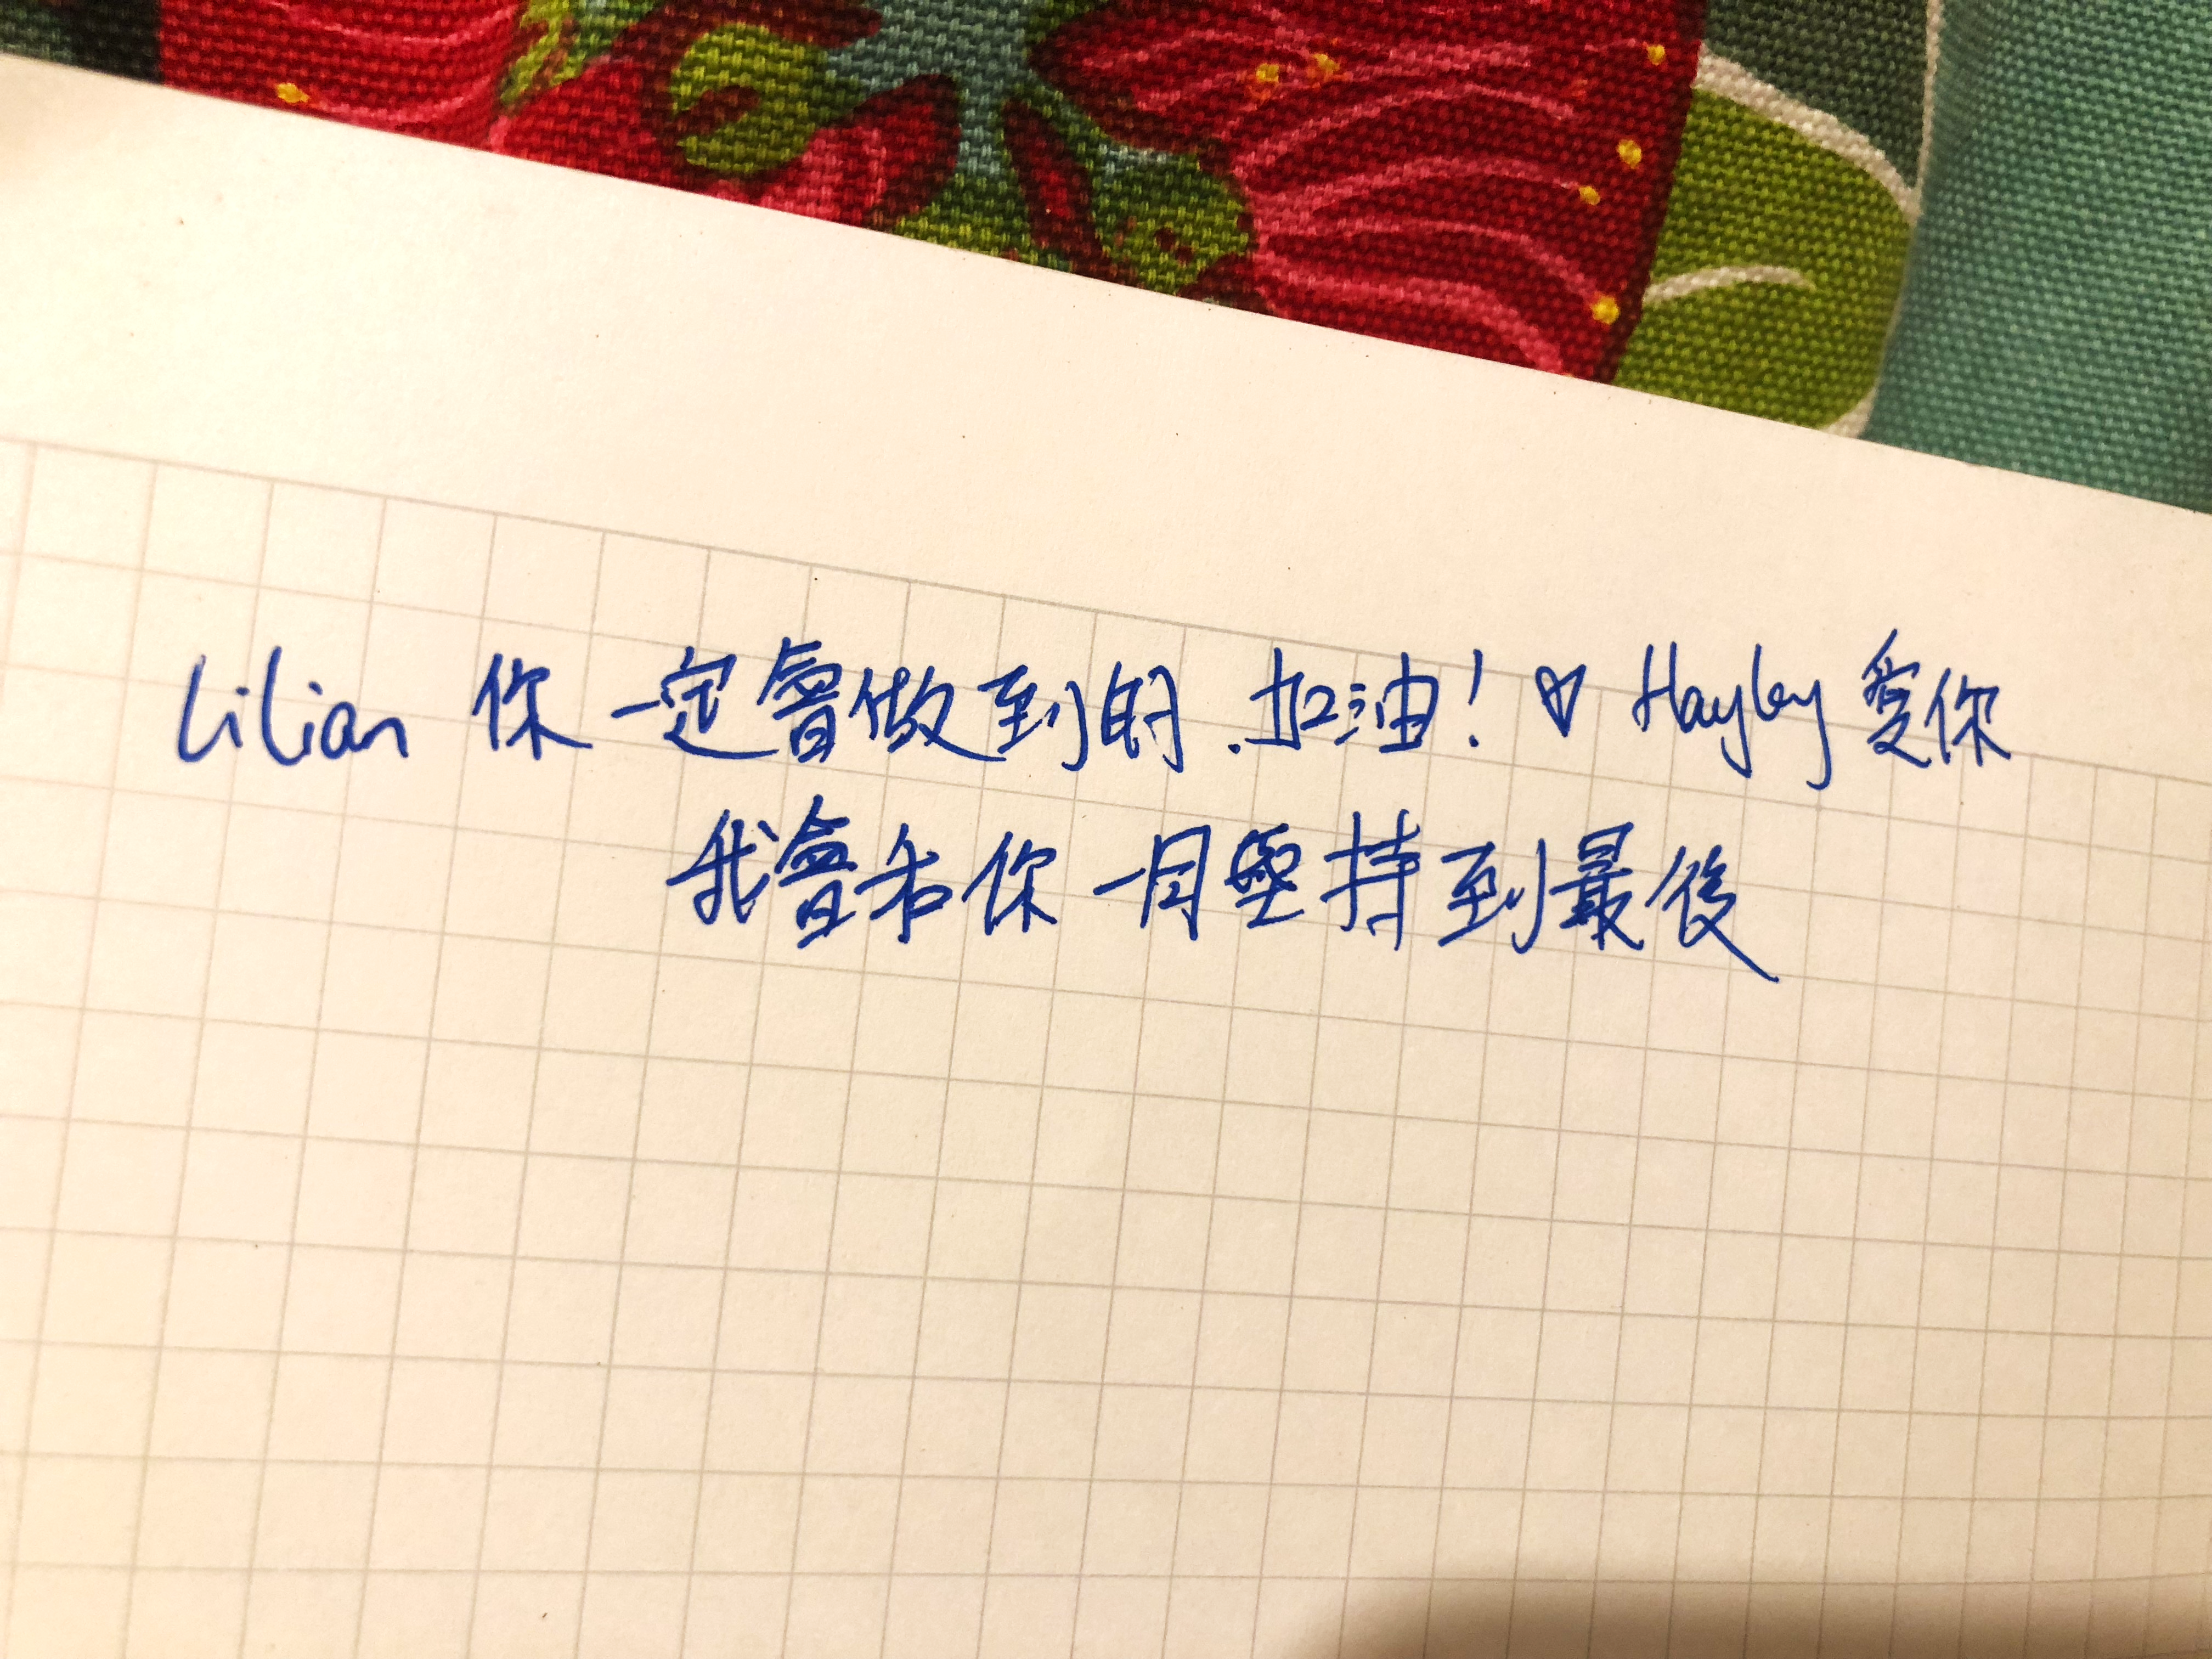 Lilian 你一定會做到的.加油！♡ Hayley 愛你
我會和你一同堅持到最後